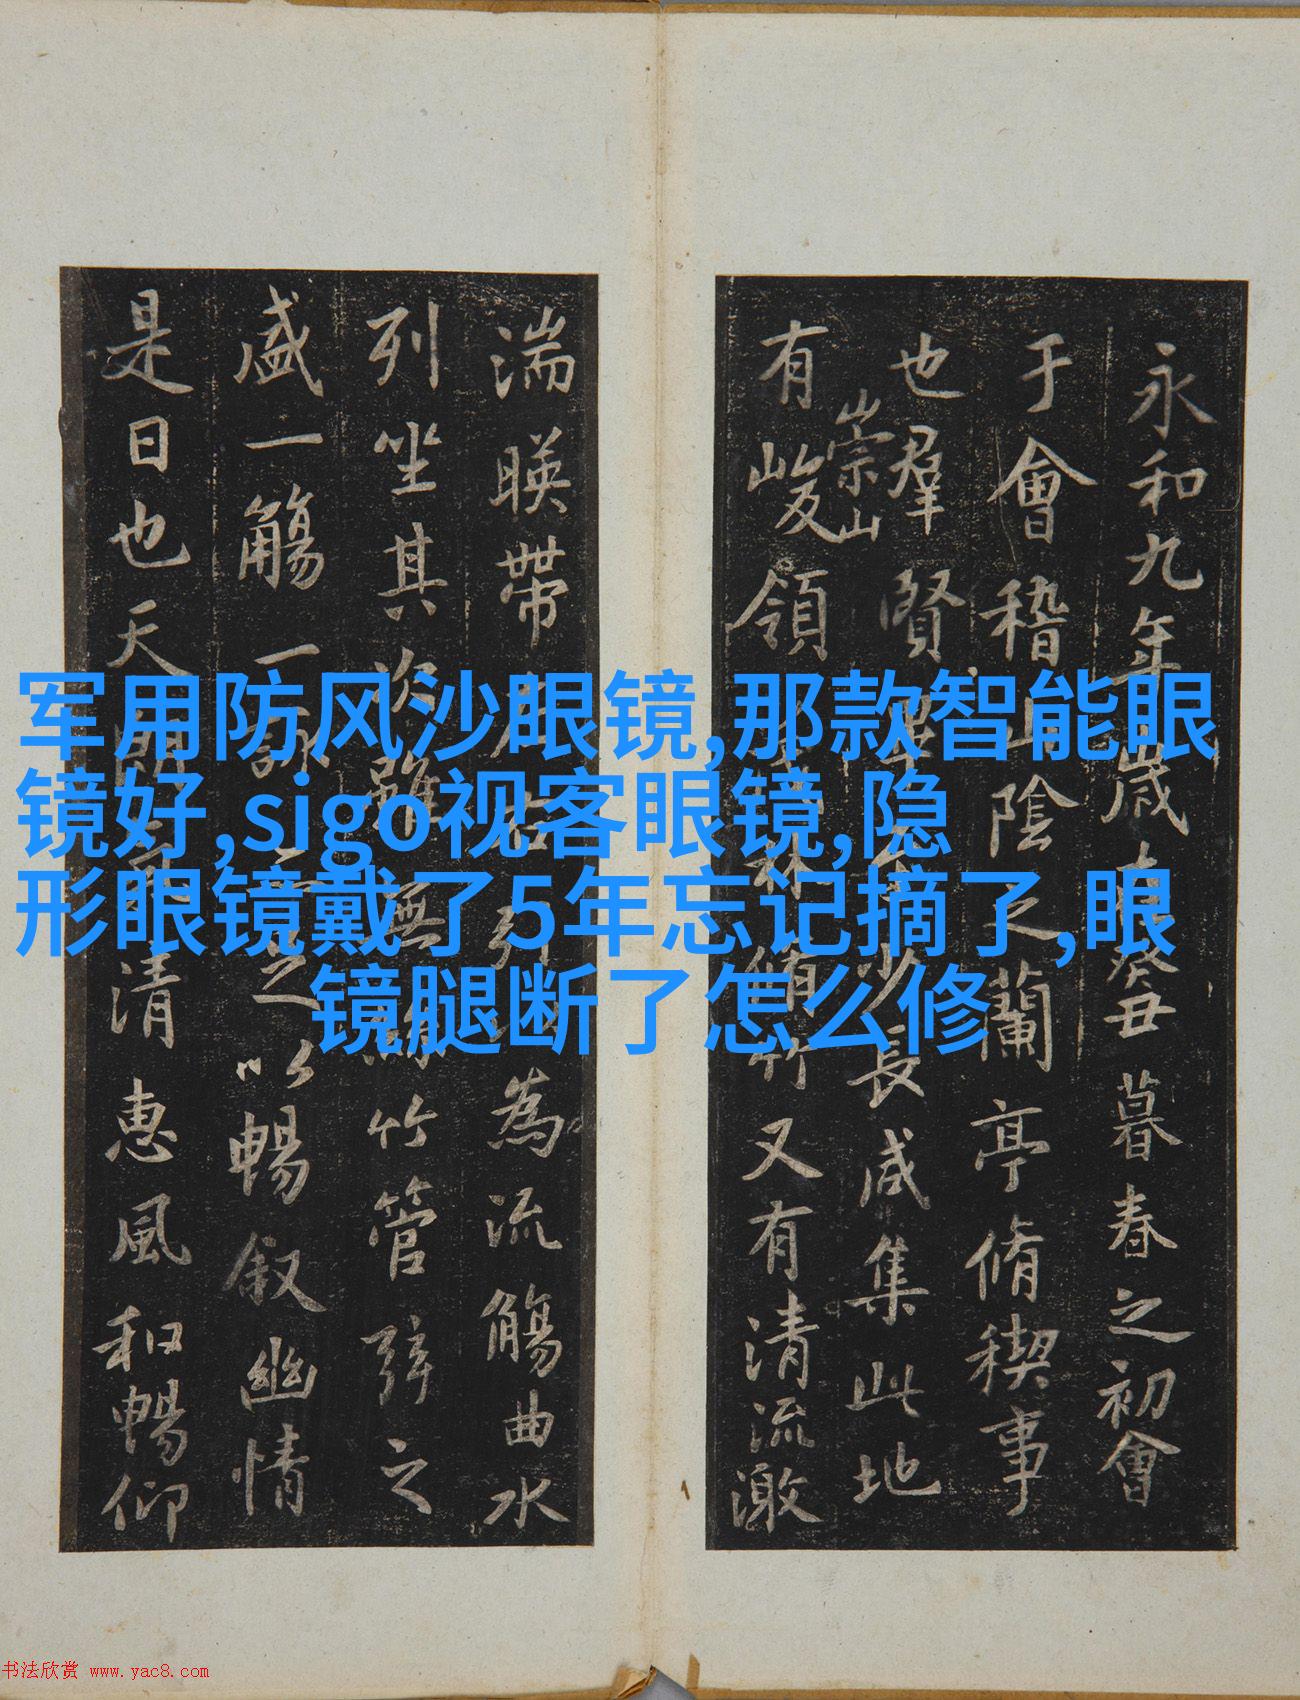 永和九年歳在癸丑暮春之初會
于會稽山陰之蘭亭脩稧事
也羣賢畢少長咸集此地
崇山
有峻領林脩竹又有清流激
湍暎帶左右引為流觴曲水
列坐其次雖無竹管弦之
盛一觴一詠以暢叙幽情
是日也天朗清惠風和暢仰
军用防风沙眼镜,那款智能眼
镜好,sigo视客眼镜,隐
形眼镜戴了5年忘记摘了,眼
镜腿断了怎么修
书法欣赏 www.yac8.com